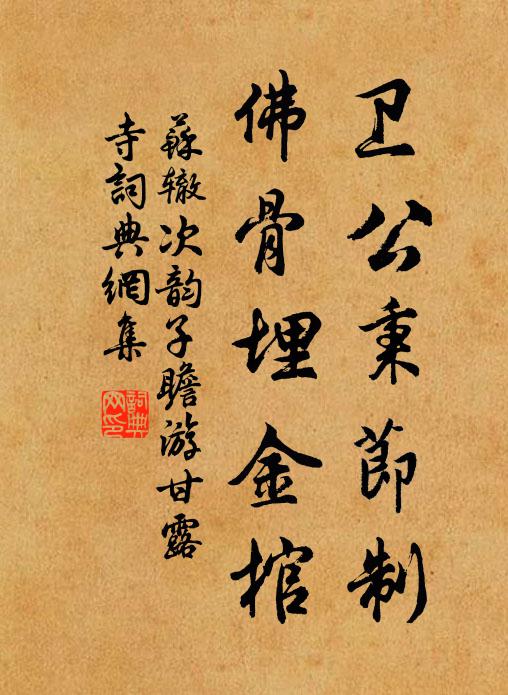 卫公秉莭制
佛骨埋金棺
蘇辙次韵子瞻游甘露
寺詞典網集
詞典
网印